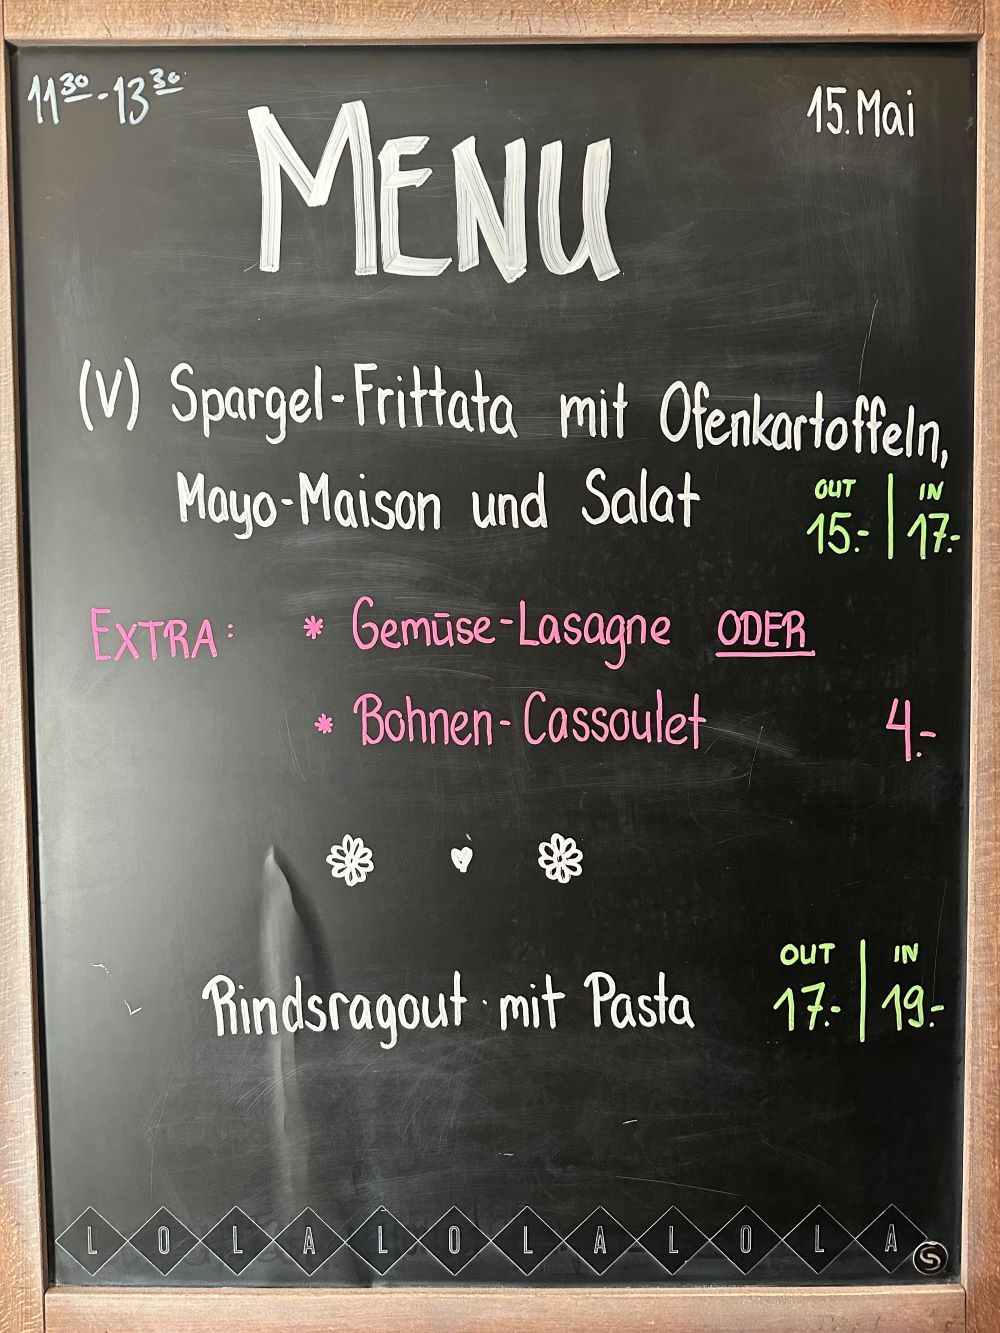 11³⁰-13³⁰
15. Mai
MENU
(V) Spargel-Frittata mit Ofenkartoffeln,
Mayo-Maison und Salat
OUT | IN
15.- | 17.-
EXTRA: * Gemüse-Lasagne ODER
* Bohnen-Cassoulet 4.-
OUT | IN
Rindsragout mit Pasta 17.- | 19.-
LOLALOLALOLA
S